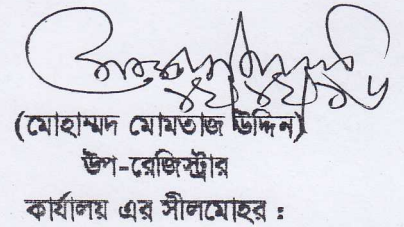 (মোহাম্মদ মোমতাজ উদ্দিন)
উপ-রেজিস্ট্রার
কার্যালয় এর সীলমোহর :